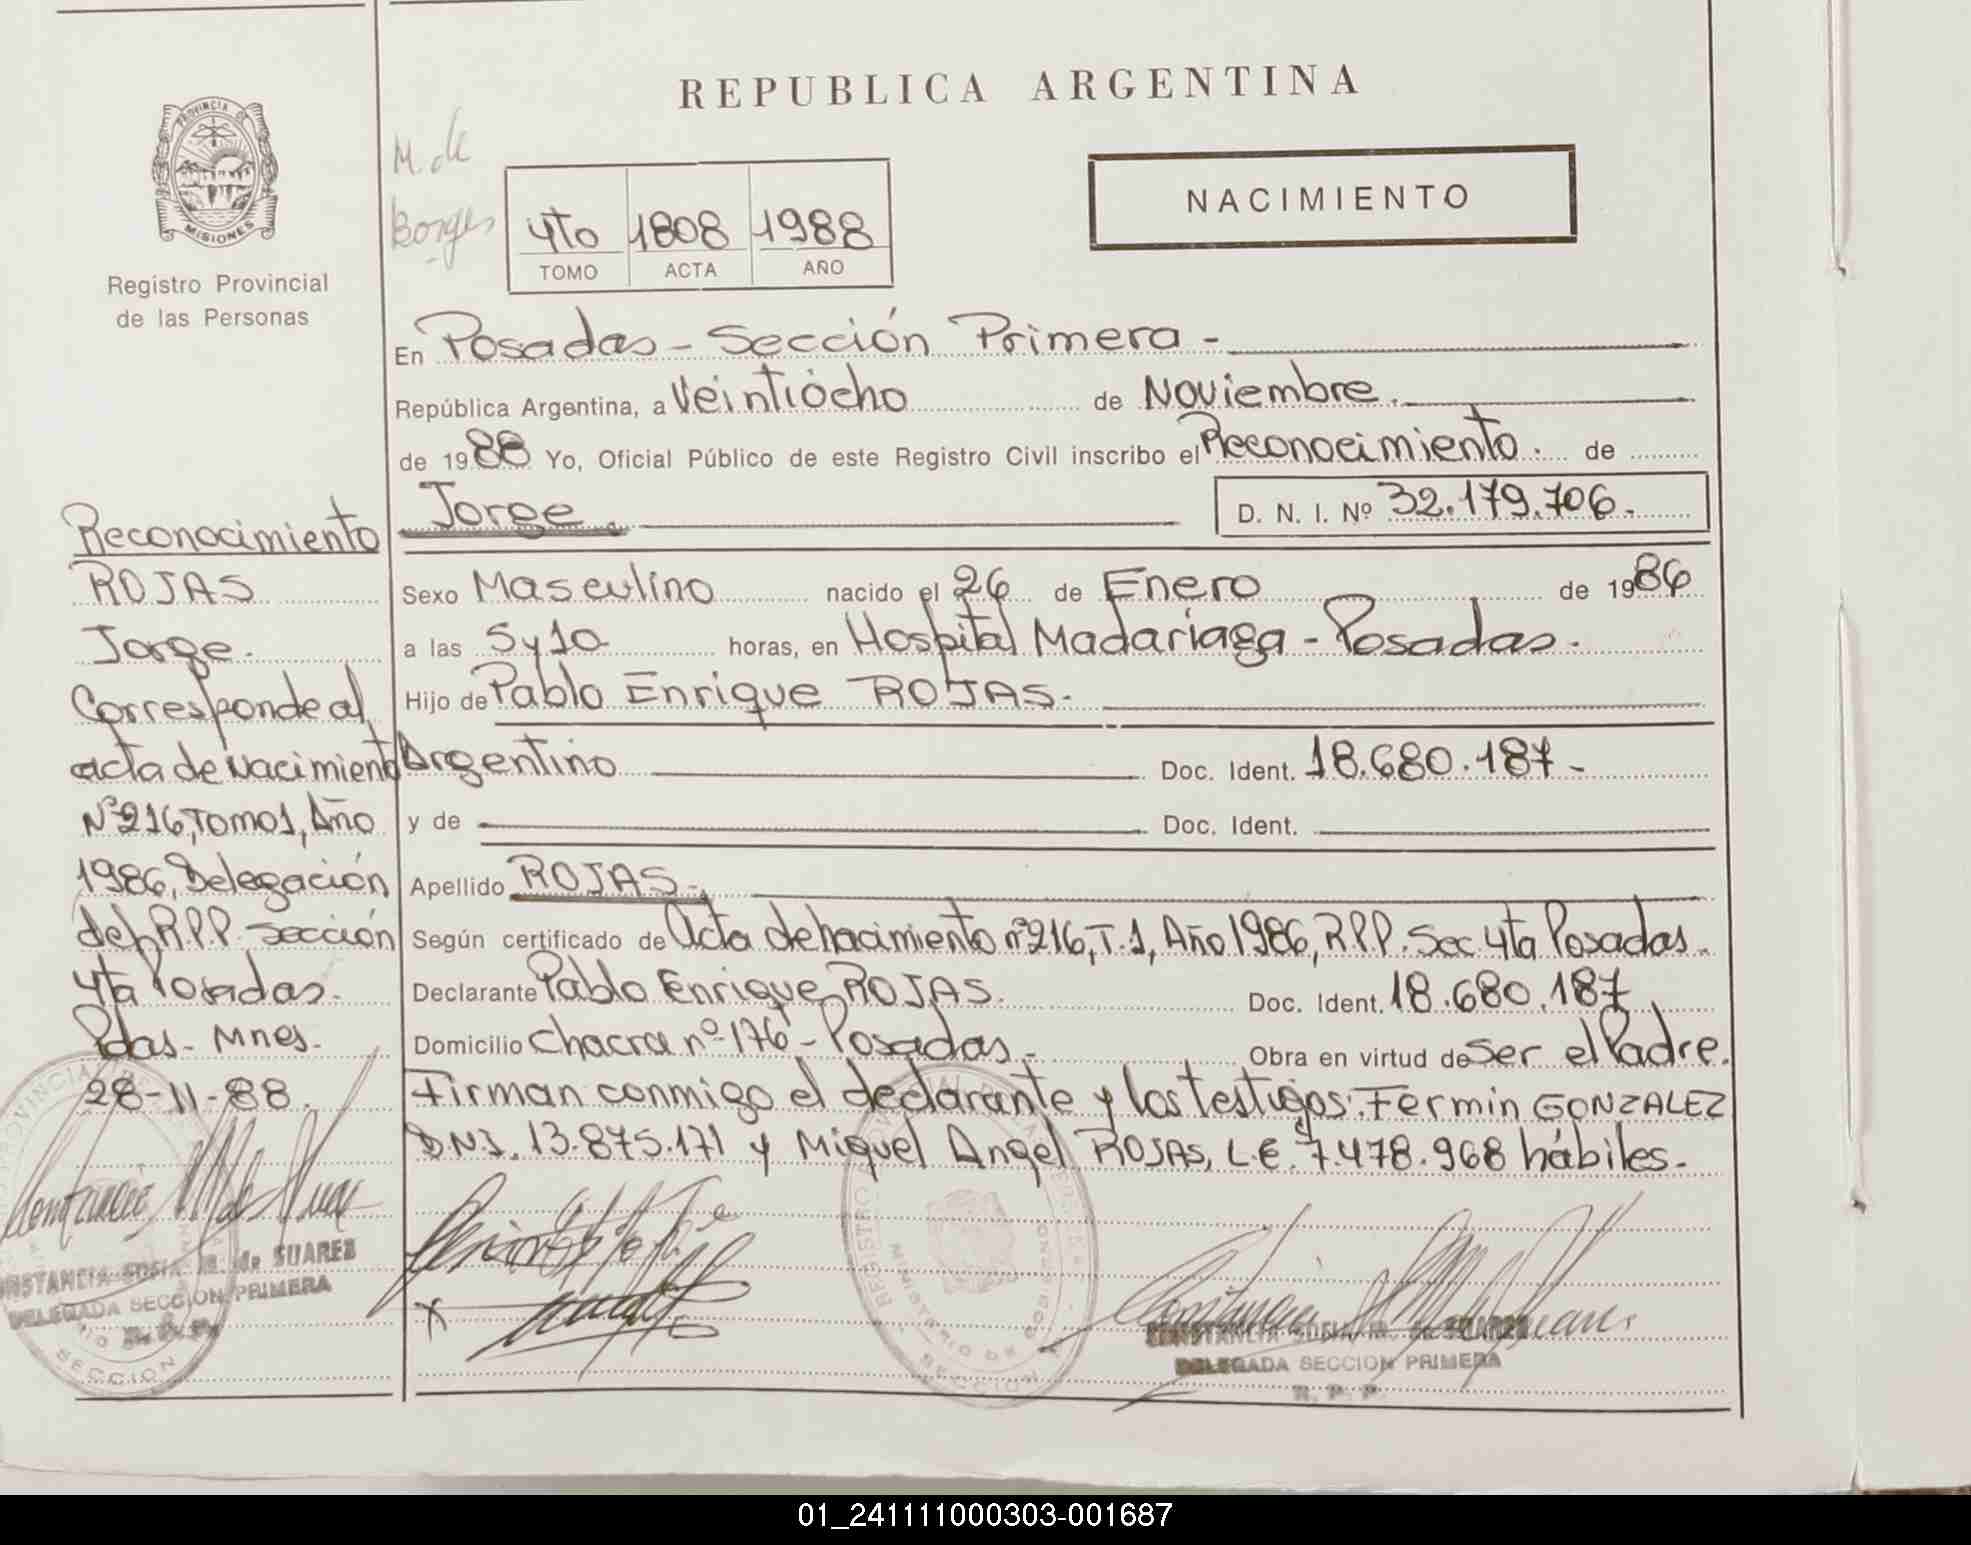 REPUBLICA ARGENTINA
PROVINCIA DE
MISIONES
Registro Provincial
de las Personas
M. de
Borges
4to 1808 1988
TOMO ACTA AÑO
NACIMIENTO
En Posadas - Sección Primera -
República Argentina, a Veintiocho de Noviembre.
de 1988 Yo, Oficial Público de este Registro Civil inscribo el Reconocimiento. de
Jorge. D. N. I. Nº 32.179.706.-
Sexo Masculino nacido el 26 de Enero de 1986
a las 5 y 10 horas, en Hospital Madariaga - Posadas.
Hijo de Pablo Enrique ROJAS.-
Argentino Doc. Ident. 18.680.187-
y de Doc. Ident.
Apellido ROJAS.-
Según certificado de Acta de nacimiento nº 216, T. 1, Año 1986, R.P.P. Sec. 4ta Posadas.
Declarante Pablo Enrique ROJAS. Doc. Ident. 18.680.187
Domicilio Chacra nº 176 - Posadas.- Obra en virtud de Ser el Padre.
Firman conmigo el declarante y los testigos: Fermin GONZALEZ
D.N.I. 13.875.171 y Miguel Angel ROJAS, L.E. 7.478.968 hábiles.-
Reconocimiento
ROJAS
Jorge.
Corresponde al
acta de Nacimiento
Nº 216, Tomo 1, Año
1986, Delegación
del R.P.P. Sección
4ta Posadas.
Pdas - Mnes.
28-11-88.
CONSTANCIA SOFIA M. de SUAREZ
DELEGADA SECCION PRIMERA
R. P. P.
X
MINISTERIO DE GOBIERNO
SECCION
CONSTANCIA SOFIA M. de SUAREZ
DELEGADA SECCION PRIMERA
R. P. P.
01_241111000303-001687